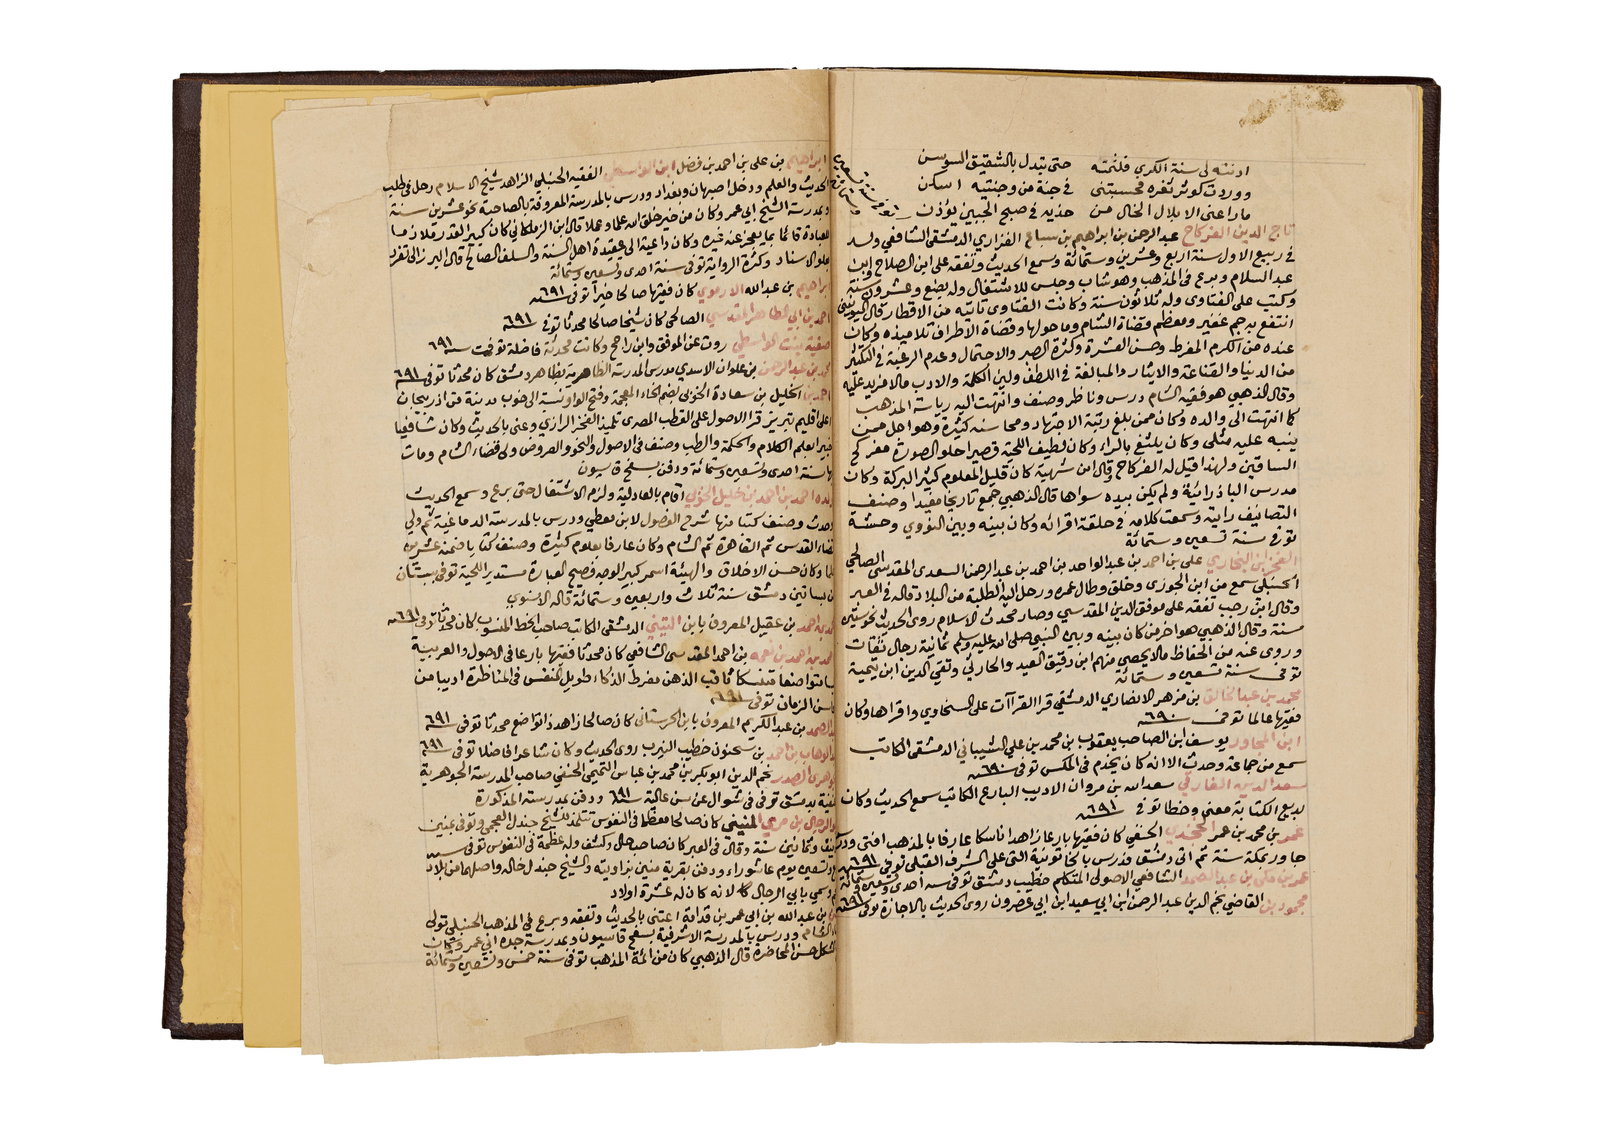 ادنته لى سنة الكرى فلثمته حتى تبدل بالشقيق السوسن
ووردت كوثر ثغره فحسبتنى في جنة من وجنتيه اسكن
ماراعنى الا بلال الخال من خديه في صبح الجبين يؤذن
تاج الدين الفركاح عبد الرحمن بن ابراهيم بن سباع الفزاري الدمشقى الشافعي ولد
في ربيع الاول سنة اربع وعشرين وستمائة وسمع الحديث وتفقه على ابن الصلاح وابن
عبد السلام وبرع في المذهب وهو شاب وجلس للاشتغال وله بضع وعشرون سنة
وكتب على الفتاوى وله ثلاثون سنة وكانت الفتاوى تاتيه من الاقطار قال اليونينى
انتفع به جم غفير ومعظم قضاة الشام وما حولها وقضاة الاطراف تلاميذه وكان
عنده من الكرم المفرط وحسن العشرة وكثرة الصبر والاحتمال وعدم الرغبة في التكثر
من الدنيا والقناعة والايثار والمبالغة في اللطف ولين الكلمة والادب مالا مزيد عليه
وقال الذهبي هو فقيه الشام درس وناظر وصنف وانتهت اليه رياسة المذهب
كما انتهت الى والده وكان ممن بلغ رتبة الاجتهاد ومحاسنه كثيرة وهو اجل ممن
ينبه عليه مثلى وكان يلثغ بالراء وكان لطيف اللحية قصيرا حلو الصورة مفركح
الساقين ولهذا قيل له الفركاح وقال ابن شهبة كان قليل المعلوم كثير البركة وكان
مدرس الباذرائية ولم يكن بيده سواها قال الذهبي جمع تاريخا مفيدا وصنف
التصانيف رايته وسمعت كلامه في حلقة اقرائه وكان بينه وبين النووي وحشة
توفي سنة تسعين وستمائة
الفخر ابن البخاري على بن احمد بن عبد الواحد بن احمد بن عبد الرحمن السعدي المقدسى الصالحي
الحنبلى سمع من ابن الجوزى وخلق وطال عمره ورحل اليه الطلبة من البلاد قاله في العبر
وقال ابن رجب تفقه على موفق الدين المقدسي وصار محدث الاسلام روى الحديث نحو ستين
سنة وقال الذهبي هو اخر من كان بينه وبين النبي صلى الله عليه وسلم ثمانية رجال ثقات
وروى عنه من الحفاظ مالا يحصى منهم ابن دقيق العيد والحارثي وتقى الدين ابن تيمية
توفى سنة تسعين وستمائة
محمد بن عبد الخالق بن مزهر الانصاري الدمشقي قرا القراآت على السخاوي واقراها وكان
فقيها عالما توفى ٦٩٠ سنة
ابن المجاور يوسف ابن الصاحب يعقوب بن محمد بن علي الشيباني الدمشقى الكاتب
سمع من جماعة وحدث الا انه كان يخدم في المكس توفى ٦٩٠ سنة
سعد الدين الفارقي سعد الله بن مروان الاديب البارع الكاتب سمع الحديث وكان
بديع الكتابة معنى وخطا توفى ٦٩١ سنة
عمر بن محمد بن عمر الخجندي الحنفي كان فقيها بارعا زاهدا ناسكا عارفا بالمذهب افتى ودرس
جاور بمكة سنة ثم اتى دمشق فدرس بالخاتونية التى على الشرف القبلى توفى ٦٩١ سنة
عمر بن مكى بن عبد الصمد الشافعي الاصولى المتكلم خطيب دمشق توفى سنة احدى وتسعين وستمائة
محمود بن القاضي نجم الدين عبد الرحمن ابن ابي سعيد ابن ابي عصرون روى الحديث بالاجازة توفى ٦٩١ سنة
ابراهيم بن على بن احمد بن فضل ابن الواسطى الفقيه الحنبلي الزاهد شيخ الاسلام رحل في طلب
الحديث والعلم ودخل اصبهان وبغداد ودرس بالمدرسة المعروفة بالصاحبة نحو عشرين سنة
وبمدرسة الشيخ ابي عمر وكان من خير خلق الله علما وعملا قال ابن الزملكاني كان كبير القدر ملازما
للعبادة قائما بما يعجز عنه غيره وكان داعية الى عقيدة اهل السنة والسلف الصالح قال البرزالى تفرد
بعلو الاسناد وكثرة الرواية توفى سنة احدى وتسعين وستمائة
ابراهيم بن عبد الله الارموي كان فقيها صالحا خيرا توفى ٦٩١ سنة
احمد بن ابي الطاهر المقدسي الصالحى كان شيخا صالحا محدثا توفى ٦٩١ سنة
صفية بنت الواسطى روت عن الموفق وابن راجح وكانت محدثة فاضلة توفيت سنة ٦٩١
محمد بن عبد الرحمن بن علوان الاسدي مدرس المدرسة الظاهرية بظاهر دمشق كان محدثا توفى ٦٩١ سنة
احمد بن الخليل بن سعادة الخويى بضم الخاء المعجمة وفتح الواو نسبة الى خوب مدينة من اذربيجان
اعلى اقليم تبريز قرا الاصول على القطب المصرى تلميذ الفخر الرازي وعنى بالحديث وكان شافعيا
خبيرا بعلم الكلام والحكمة والطب وصنف في الاصول والنحو والعروض ولى قضاء الشام ومات
بها سنة احدى وتسعين وستمائة ودفن بسفح قاسيون
ولده احمد بن احمد بن خليل الخويى اقام بالعادلية ولزم الاشتغال حتى برع وسمع الحديث
وحدث وصنف كتبا منها شرح الفصول لابن معطى ودرس بالمدرسة الدماغية ثم ولي
قضاء القدس ثم القاهرة ثم الشام وكان عارفا بعلوم كثيرة وصنف كتابا ضمنه عشرين
علما وكان حسن الاخلاق والهيئة اسمر كبير الوجه فصيح العبارة مستدير اللحية توفى ببستان
من بساتين دمشق سنة ثلاث واربعين وستمائة قاله الاسنوي
احمد بن عقيل المعروف بابن التيتي الدمشقى الكاتب صاحب الخط المنسوب كان محدثا توفى ٦٩١ سنة
احمد بن احمد بن نعمه بن احمد المقدسى الشافعي كان محدثا فقيها بارعا في الاصول والعربية
متواضعا متنسكا ثاقب الذهن مفرط الذكاء طويل النفس في المناظرة اديبا من
محاسن الزمان توفى ٦٩١ سنة
عبد الصمد بن عبد الكريم المعروف بابن الحرستانى كان صالحا زاهدا متواضع محدثا توفى ٦٩١ سنة
عبد الوهاب بن احمد بن سحنون خطيب النيرب روى الحديث وكان شاعرا فاضلا توفى ٦٩١
الجوهرى الصدر نجم الدين ابو بكر بن محمد بن عباس التميمى الحنفي صاحب المدرسة الجوهرية
الحنفية بدمشق توفى في شوال عن سن عالية سنة ٦٩١ ودفن بمدرسته المذكورة
ابو الرجال بن مري المنينى كان صالحا معظما في النفوس تتلمذ للشيخ جندل العجمي وتوفى عن
نيف وثمانين سنة وقال في العبر كان صاحب حال وكشف وله عظمة في النفوس توفى سنة
وتسعين يوم عاشوراء ودفن بقرية منين بزاويته والشيخ جندل خاله واصلهما من بلاد
وسمي بابي الرجال لانه كان له عشرة اولاد
بن عبد الله بن ابي عمر بن قدامة اعتنى بالحديث وتفقه وبرع في المذهب الحنبلي تولى
الشام ودرس بالمدرسة الاشرفية بسفح قاسيون وبمدرسة جده ابي عمر وكان
الشكل حسن المحاضرة قال الذهبي كان من ائمة المذهب توفى سنة خمس وتسعين وستمائة